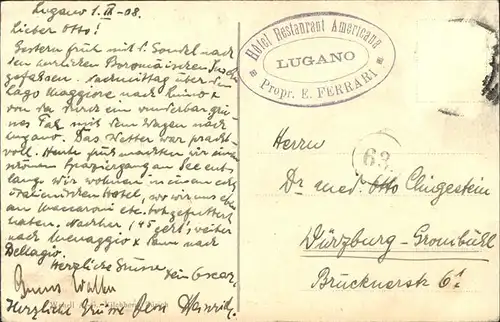 Lugano 1. IX - 08.
Lieber Otto!
Gestern früh mit d. Gondel nach
den Borromäischen Inseln
gefahren. Nachmittag über den
Lago Maggiore nach Luino &
von da durch ein wunderbar grü-
nes Tal mit dem Wagen nach
Lugano. Das Wetter war pracht-
voll. Heute früh machten wir einen
schönen Spaziergang am See ent-
lang. Wir wohnen in einem echt
italienischen Hotel, wo wir uns eben
an Maccaroni etc.
haben. Nachher 1 45 geht's weiter
nach Menaggio & dann nach
Bellagio.
Herzliche Grüsse
Dein Oscar.
Herzliche Grüsse Dein Heinrich
Hôtel Restaurant Americana
LUGANO
Propr. E. FERRARI
63
Herrn
Dr. med. Otto
Würzburg - Grombühl
Brücknerstr 6 I